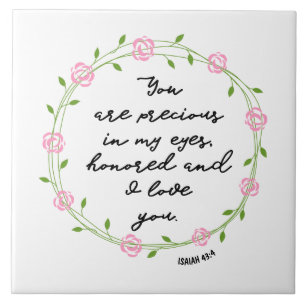 You
are precious
in my eyes,
honored and
I love
you.
ISAIAH 43:4